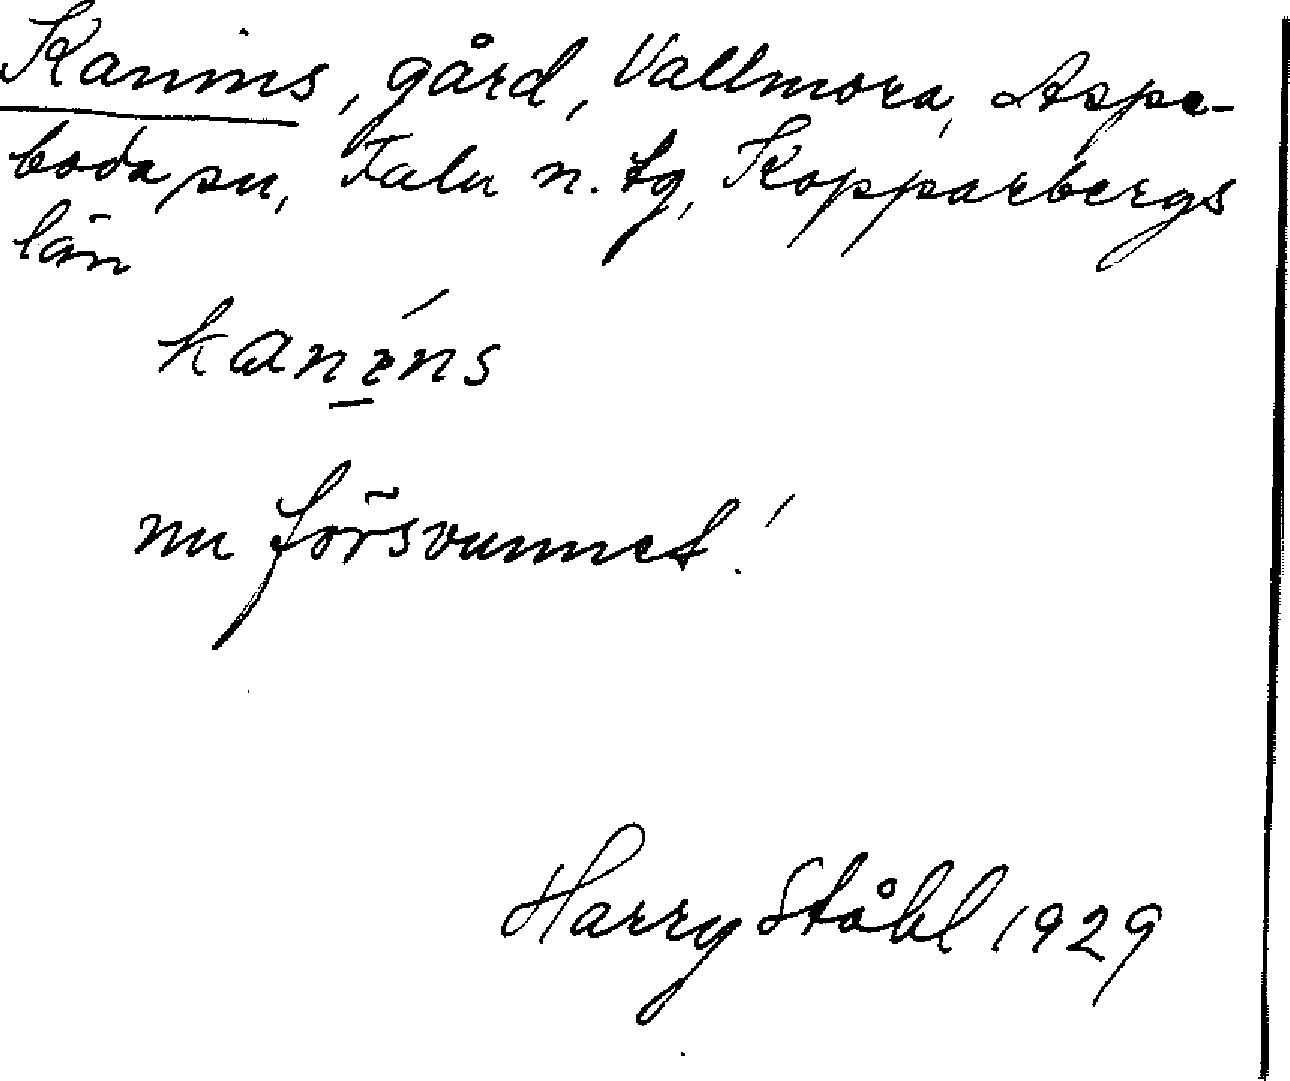 Kanins, gård, Vallmora, Aspe-
boda sn, Falu n. tg, Kopparbergs
län
kanı̣́ns
nu försvunnet!
Harry Ståhl 1929